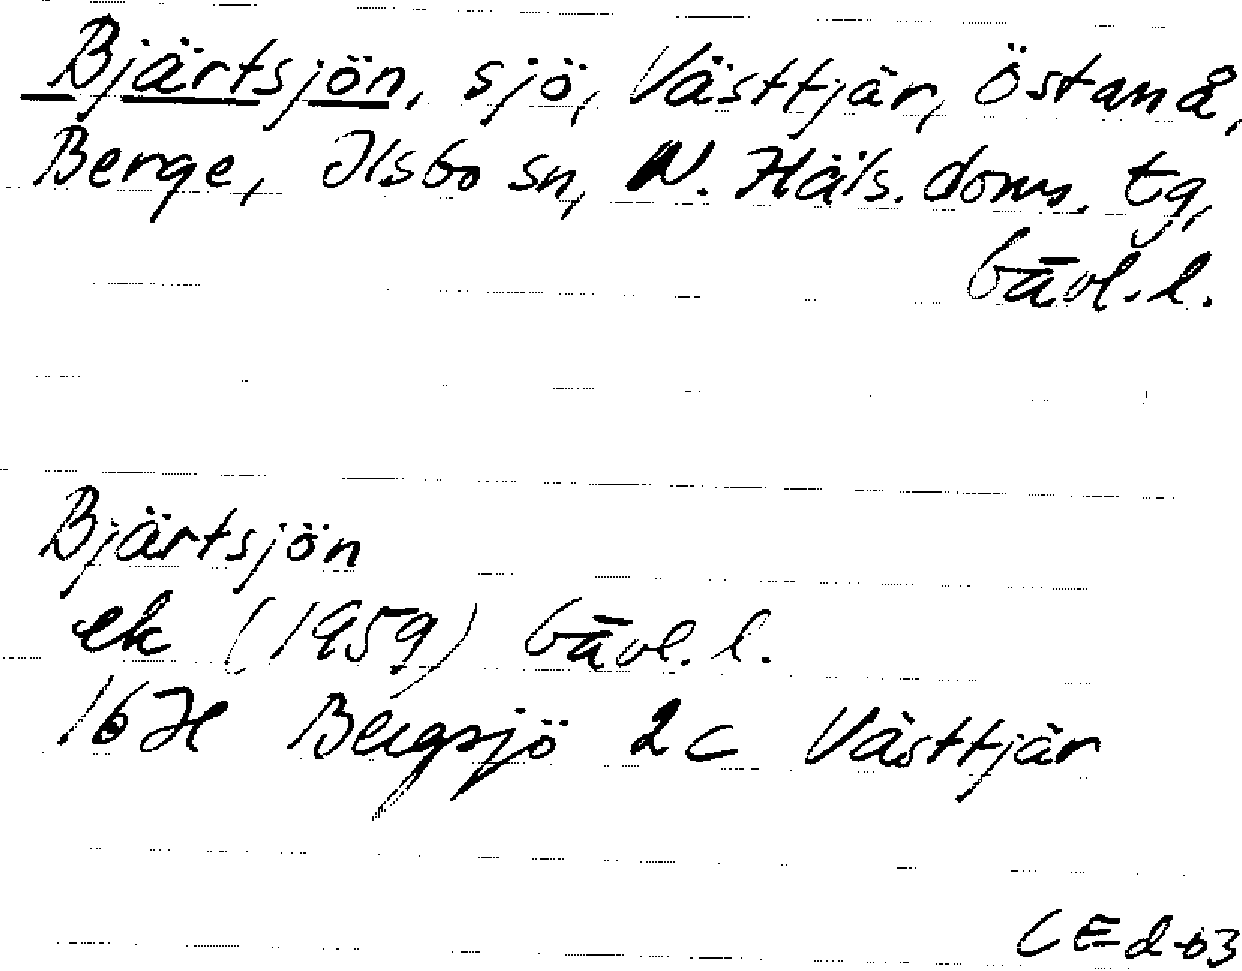 Bjärtsjön, sjö, Västtjär, Östanå,
Berge, Ilsbo sn, N. Häls. doms. tg,
Gävl. l.
Bjärtsjön
ek (1959) Gävl. l.
16H Bergsjö 2c Västtjär